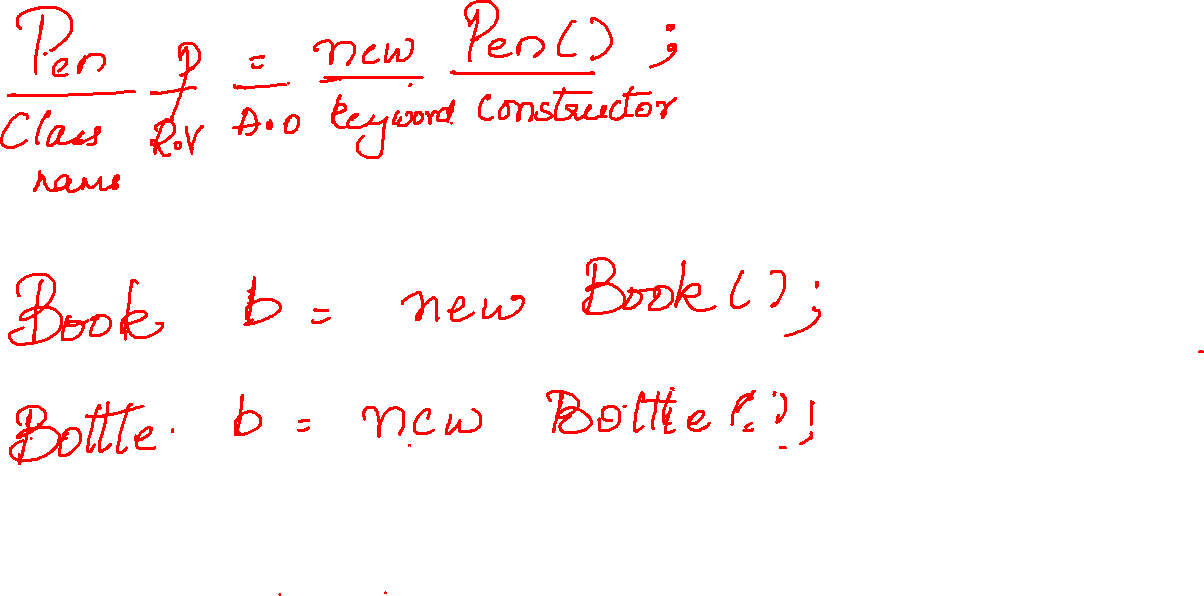 Pen P = new Pen() ;
Class R.V A.O keyword Constructor
name
Book b = new Book();
Bottle. b = new Bottle();